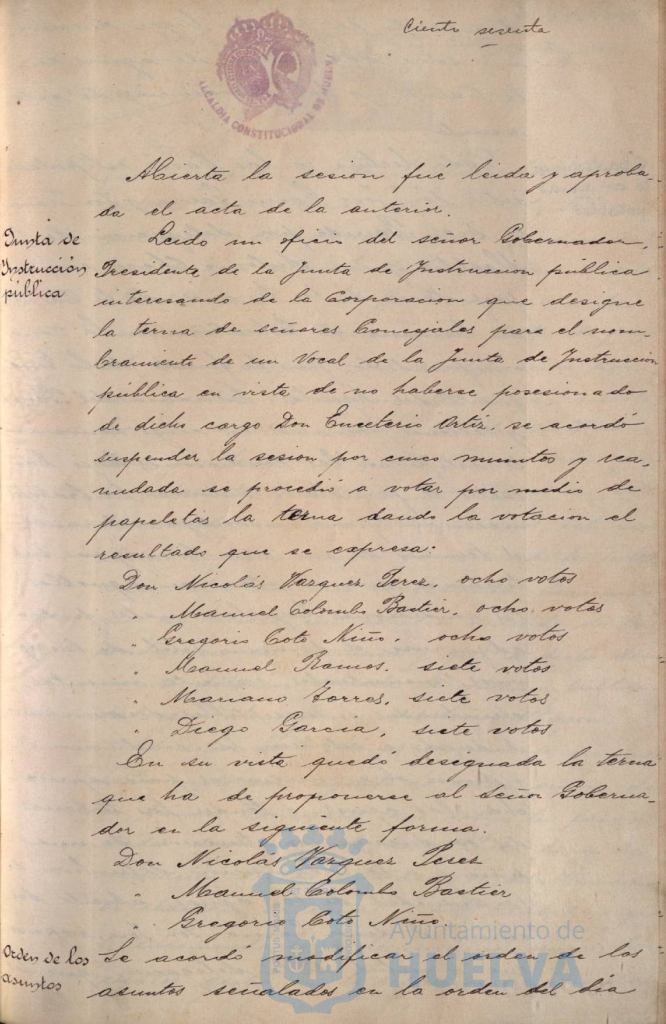 Ciento sesenta
ALCALDIA CONSTITUCIONAL DE HUELVA
Abierta la sesion fué leida y aproba-
da el acta de la anterior.
Junta de
Instrucción
pública
Leido un oficio del señor Gobernador,
Presidente de la Junta de Instruccion pública
interesando de la Corporacion que designe
la terna de señores Concejales para el nom-
bramiento de un Vocal de la Junta de Instruccion
pública en vista de no haberse posesionado
de dicho cargo Don Emeterio Ortiz, se acordó
suspender la sesion por cinco minutos y rea-
nudada se procedió a votar por medio de
papeletas la terna dando la votacion el
resultado que se expresa:
Don Nicolás Vazquez Perez, ocho votos
" Manuel Colombo Bactier, ocho votos
" Gregorio Coto Niño, ocho votos
" Manuel Ramos, siete votos
" Mariano Torres, siete votos
" Diego Garcia, siete votos
En su vista quedó designada la terna
que ha de proponerse al Señor Goberna-
dor en la siguiente forma.
Don Nicolás Vazquez Perez
" Manuel Colombo Bactier
" Gregorio Coto Niño
Orden de los
asuntos
Se acordó modificar el orden de los
asuntos señalados en la orden del dia
Ayuntamiento de
HUELVA